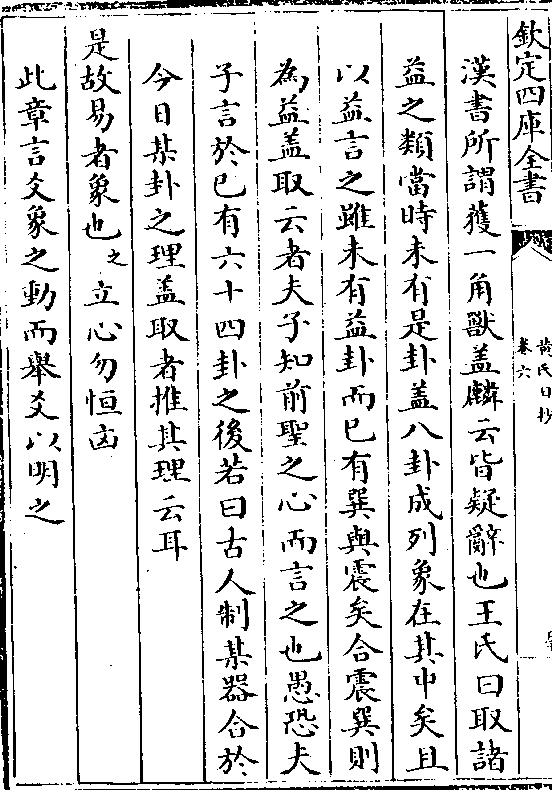 欽定四庫全書
黄氏日抄
卷六
漢書所謂獲一角獸盖麟云皆疑辭也王氏曰取諸
益之類當時未有是卦盖八卦成列象在其中矣且
以益言之雖未有益卦而已有巽與震矣合震巽則
為益盖取云者夫子知前聖之心而言之也愚恐夫
子言於已有六十四卦之後若曰古人制某器合於
今日某卦之理盖取者推其理云耳
是故易者象也之立心勿恒凶
此章言爻象之動而舉爻以明之